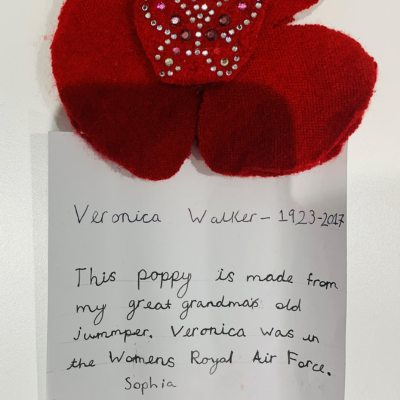 Veronica Walker - 1923-2017
This poppy is made from
my great grandma's old
jummper. Veronica was in
the Womens Royal Air Force.
Sophia